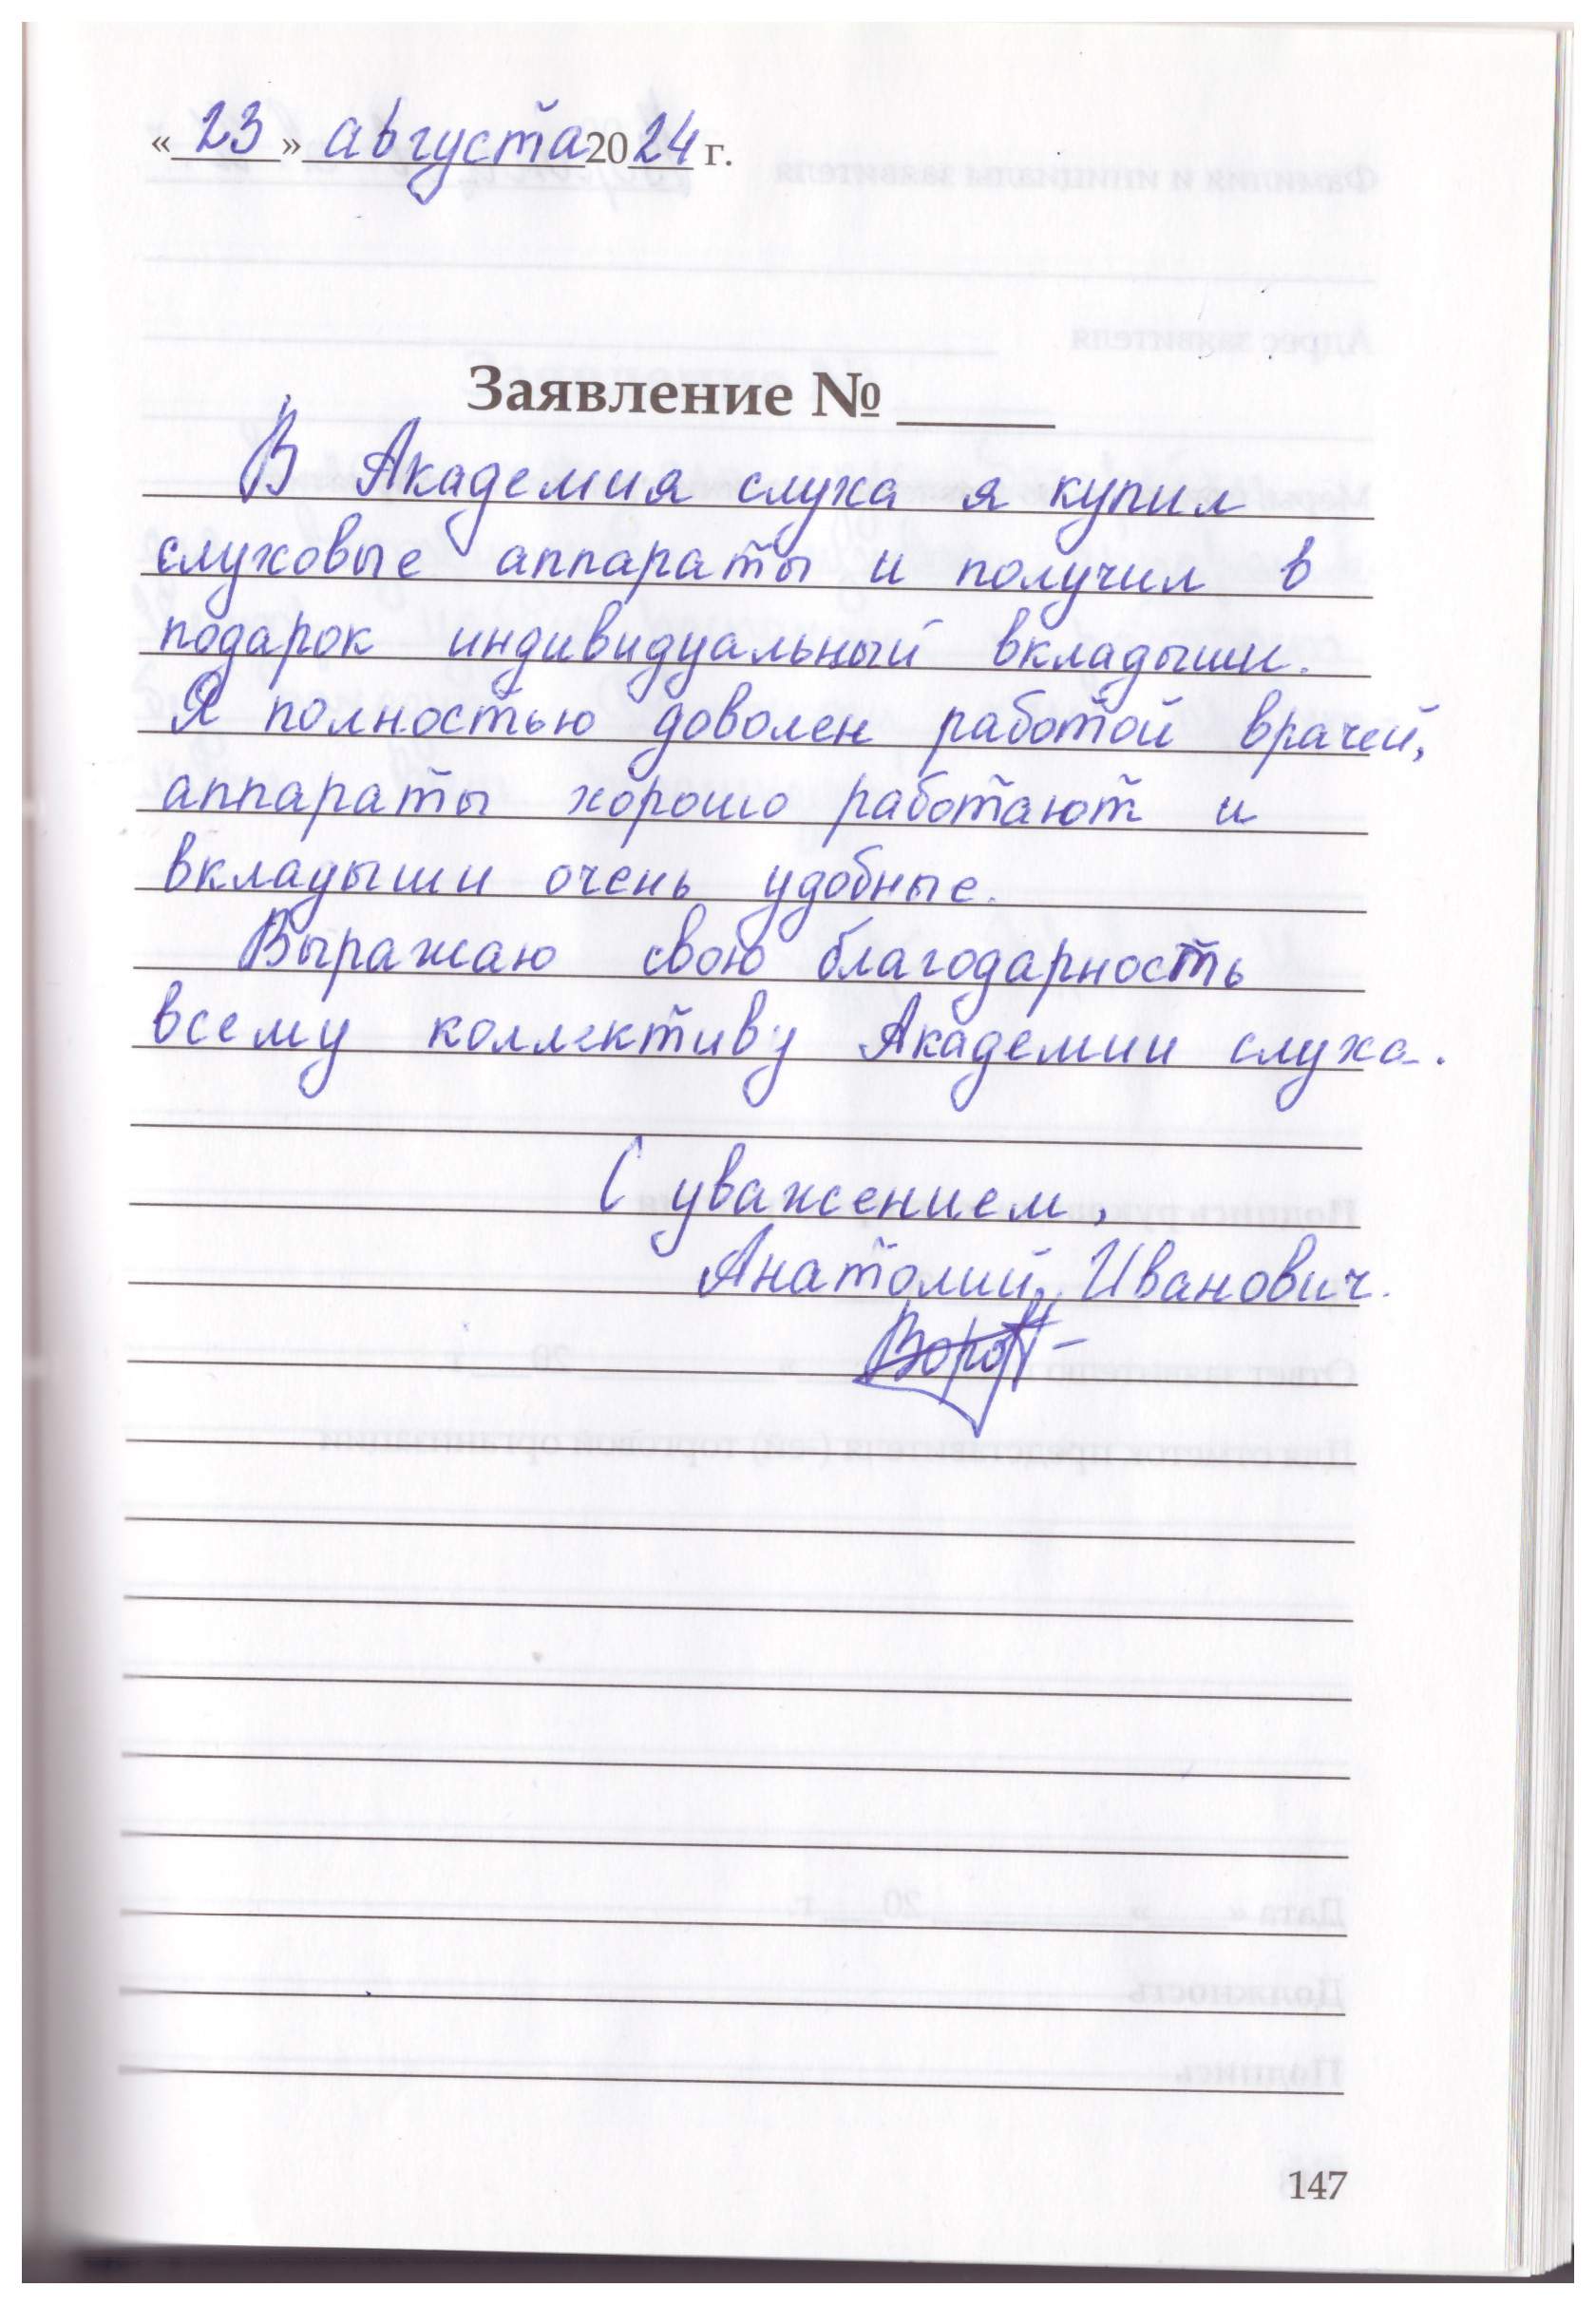 «23» августа 2024 г.
Заявление № ____
В Академия слуха я купил
слуховые аппараты и получил в
подарок индивидуальный вкладыши.
Я полностью доволен работой врачей,
аппараты хорошо работают и
вкладыши очень удобные.
Выражаю свою благодарность
всему коллективу Академии слуха.
С уважением,
Анатолий Иванович.
147